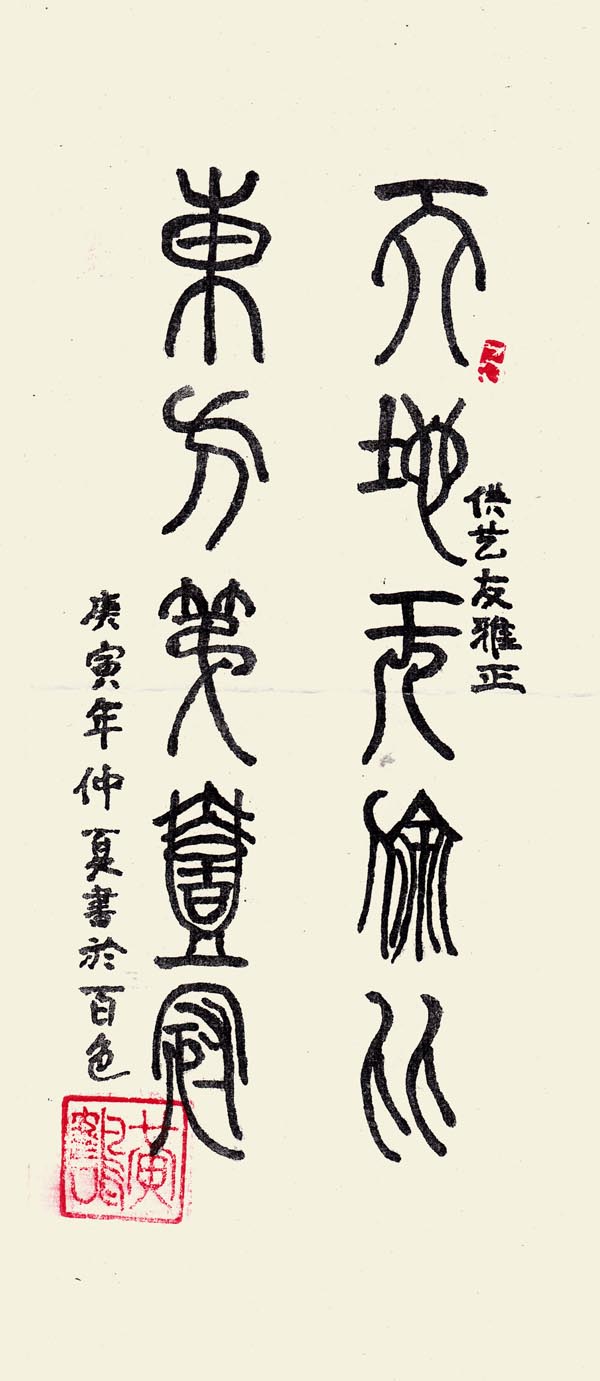 供艺友雅正
天地无倫比
東方第壹冠
庚寅年仲夏書於百色
黄